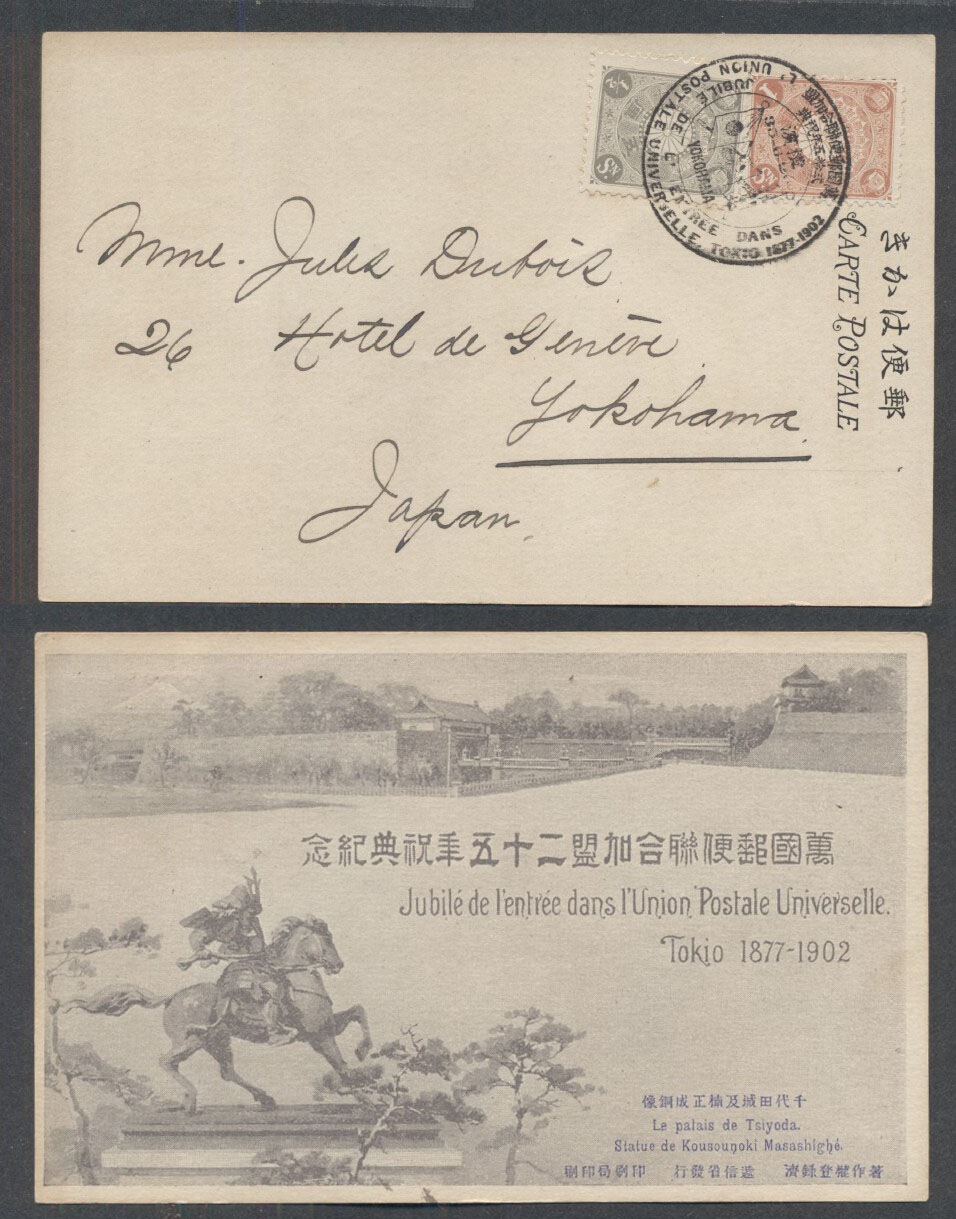 1/2
Sn
1
Sn
JUBILE DE L'ENTREE DANS
L'UNION POSTALE UNIVERSELLE. TOKIO 1877-1902
YOKOHAMA
郵便はかき
CARTE POSTALE
Mme. Jules Dubois
26 Hotel de Genève
Yokohama
Japan.
萬國郵便聯合加盟二十五年祝典紀念
Jubilé de l'entrée dans l'Union Postale Universelle.
Tokio 1877-1902
千代田城及楠正成銅像
Le palais de Tsiyoda.
Statue de Kousounoki Masashighé.
著作權登錄濟 遞信省發行 印刷局印刷